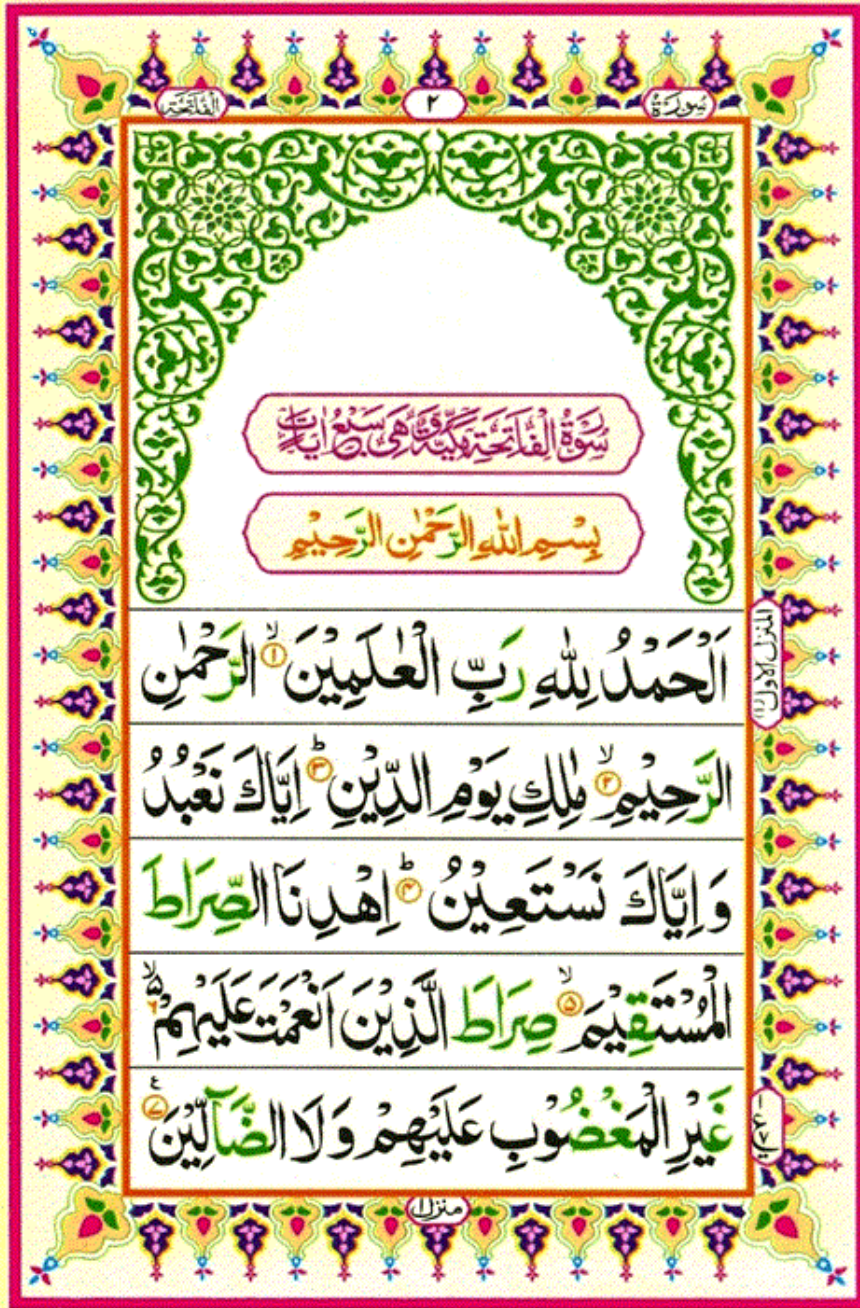 سورة
٢
الفاتحة
سُوْرَةُ الْفَاتِحَةِ مَكِّيَّةٌ وَّهِیَ سَبْعُ اٰیَاتٍ
بِسْمِ اللّٰهِ الرَّحْمٰنِ الرَّحِیْمِ
اَلْحَمْدُ لِلّٰهِ رَبِّ الْعٰلَمِیْنَ ۙ‏﴿۱﴾ الرَّحْمٰنِ
الرَّحِیْمِ ۙ‏﴿۲﴾ مٰلِكِ یَوْمِ الدِّیْنِ ؕ‏﴿۳﴾ اِیَّاكَ نَعْبُدُ
وَ اِیَّاكَ نَسْتَعِیْنُ ؕ‏﴿۴﴾ اِهْدِنَا الصِّرَاطَ
الْمُسْتَقِیْمَ ۙ‏﴿۵﴾ صِرَاطَ الَّذِیْنَ اَنْعَمْتَ عَلَیْهِمْ ۙ۵ ۶
غَیْرِ الْمَغْضُوْبِ عَلَیْهِمْ وَ لَا الضَّآلِّیْنَ ﴿۷﴾ ع
المنزل الاول (۱)
منزل ۱